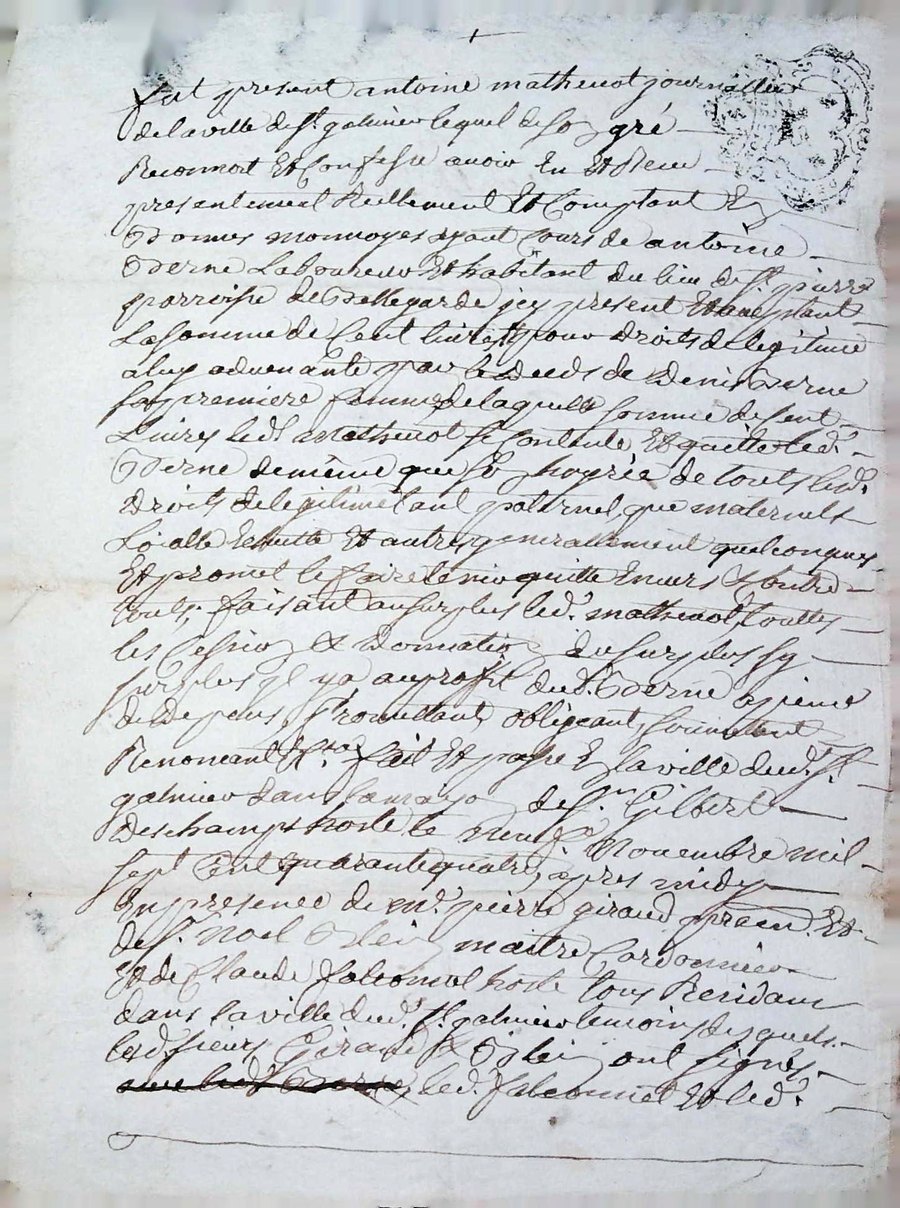 fut present antoine mathenot journallier
de la ville de St galmier lequel de son gré
Reconnoit Et Confesse avoir Eu Et Receu
presentement Reellement Et Comptant En
Bonnes monnoyes ayant Cours de antoine
Berne Laboureur Et habitant du lieu de St pierre
parroisse de Bellegarde icy present Et acceptant
La somme de Cent livres pour droits de legitime
a luy advenante par le Deceds de Denise Berne
sa premiere femme de laquelle somme de Cent
Livres led. mathenot se Contente Et quitte led.
Berne de meme que de tous lesd.
Droits de legitime tant paternel que maternels
Loialle Echutte Et autres generallement quelconques
Et promet le faire tenir quitte Envers Et Contre
touts, faisant au surplus led. mathenot touttes
les Cession Et donnation du surplus sy
surplus il y a au proffit dud. Berne a peine
de Depens, Promettant, obligeant, soumettant
Renoncant &ca fait Et passé En la ville dud. St
galmier dans la maison de Sr Gilbert
Deschamps hoste le neuf Novembre mil
sept Cent quarante quatre, apres midy
En presence de me pierre giraud Et
de Sr Noel maitre Cordonnier
Et de Claude falconnet hoste tous Residant
dans la ville dud. St galmier temoins desquels
lesd. sieurs Giraud & ont signés
led. falconnet Et led.